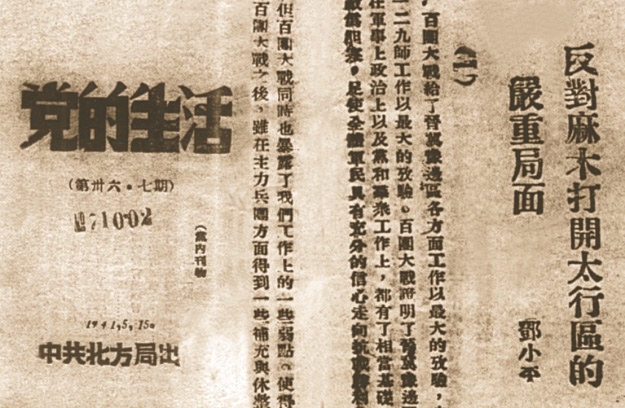 反對麻木打開太行區的
嚴重局面
鄧小平
(一)
百團大戰給了晉冀豫邊區各方面工作以最大的攷驗，
一二九師工作以最大的攷驗。百團大戰證明了晉冀豫邊
在軍事上政治上以及黨和羣衆工作上，都有了相當基礎
足使全體軍民具有充分的信心走向抗戰勝利
但百團大戰同時也暴露了我們工作上的一些弱點。使得
百團大戰之後，雖在主力兵團方面得到一些補充與休整
党的生活
(第卅六・七期)
№71002
(黨內刊物)
1941,5,15。
中共北方局出